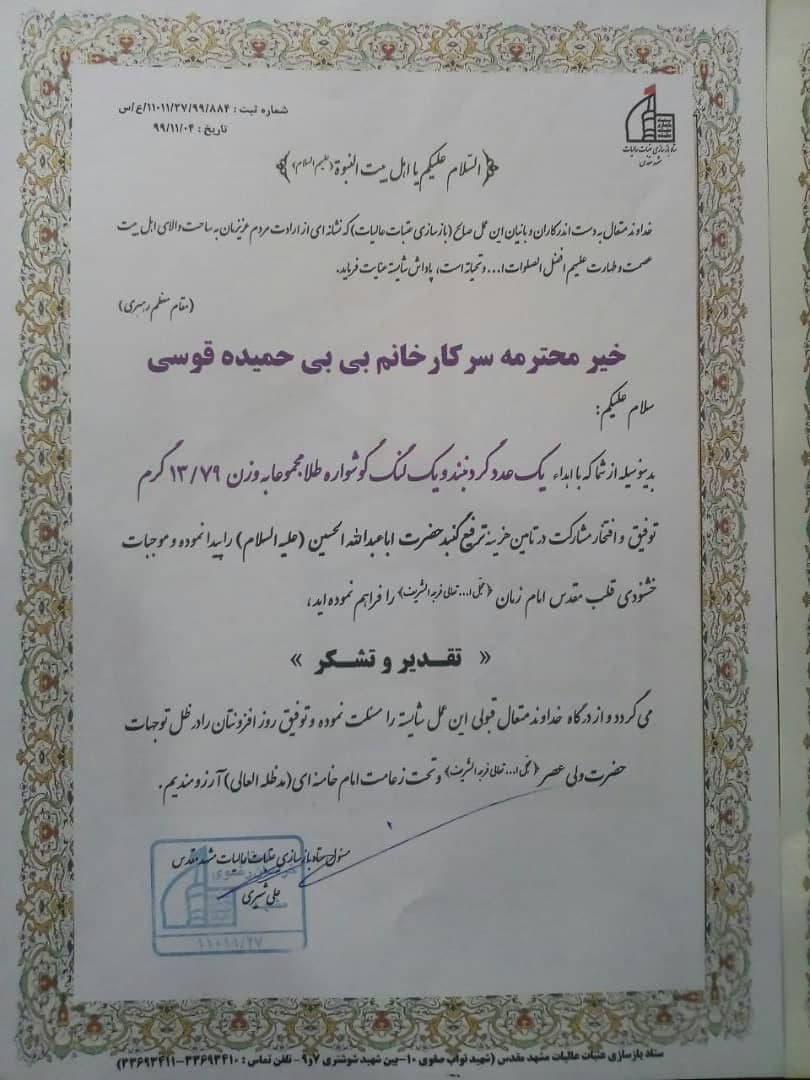 شماره ثبت : ۱۱۰۱۱/۲۷/۹۹/۸۸۴/ع/س
تاریخ : ۹۹/۱۱/۰۴
ستاد بازسازی عتبات عالیات
مشهد مقدس
السّلام علیکم یا اهل بیت النبوة (علیهم السلام)
خداوند متعال به دست اندرکاران و بانیان این عمل صالح (بازسازی عتبات عالیات) که نشانه ای از ارادت مردم عزیزمان به ساحت والای اهل بیت
عصمت و طهارت علیهم افضل الصلوات ا... و تحیاته است، پاداش شایسته عنایت فرماید.
(مقام معظم رهبری)
خیر محترمه سرکار خانم بی بی حمیده قوسی
سلام علیکم:
بدینوسیله از شما که با اهداء یک عدد گردنبند و یک لنگ گوشواره طلا مجموعا به وزن ۱۳/۷۹ گرم
توفیق و افتخار مشارکت در تامین هزینه ترفیع گنبد حضرت اباعبدالله الحسین (علیه السلام) را پیدا نموده و موجبات
خشنودی قلب مقدس امام زمان (عجّل ا... تعالی فرجه الشریف) را فراهم نموده اید،
« تقدیر و تشکر »
می گردد و از درگاه خداوند متعال قبولی این عمل شایسته را مسئلت نموده و توفیق روز افزونتان را در ظل توجهات
حضرت ولی عصر (عجّل ا... تعالی فرجه الشریف) و تحت زعامت امام خامنه ای (مدظله العالی) آرزومندیم.
مسئول ستاد بازسازی عتبات عالیات مشهد مقدس
علی شیری
۱۱۰۱۱/۲۷
ستاد بازسازی عتبات عالیات مشهد مقدس (شهید نواب صفوی ۱۰-بین شهید شوشتری ۷و۹ - تلفن تماس : ۳۳۶۹۳۴۱۰-۳۳۶۹۳۴۱۱)